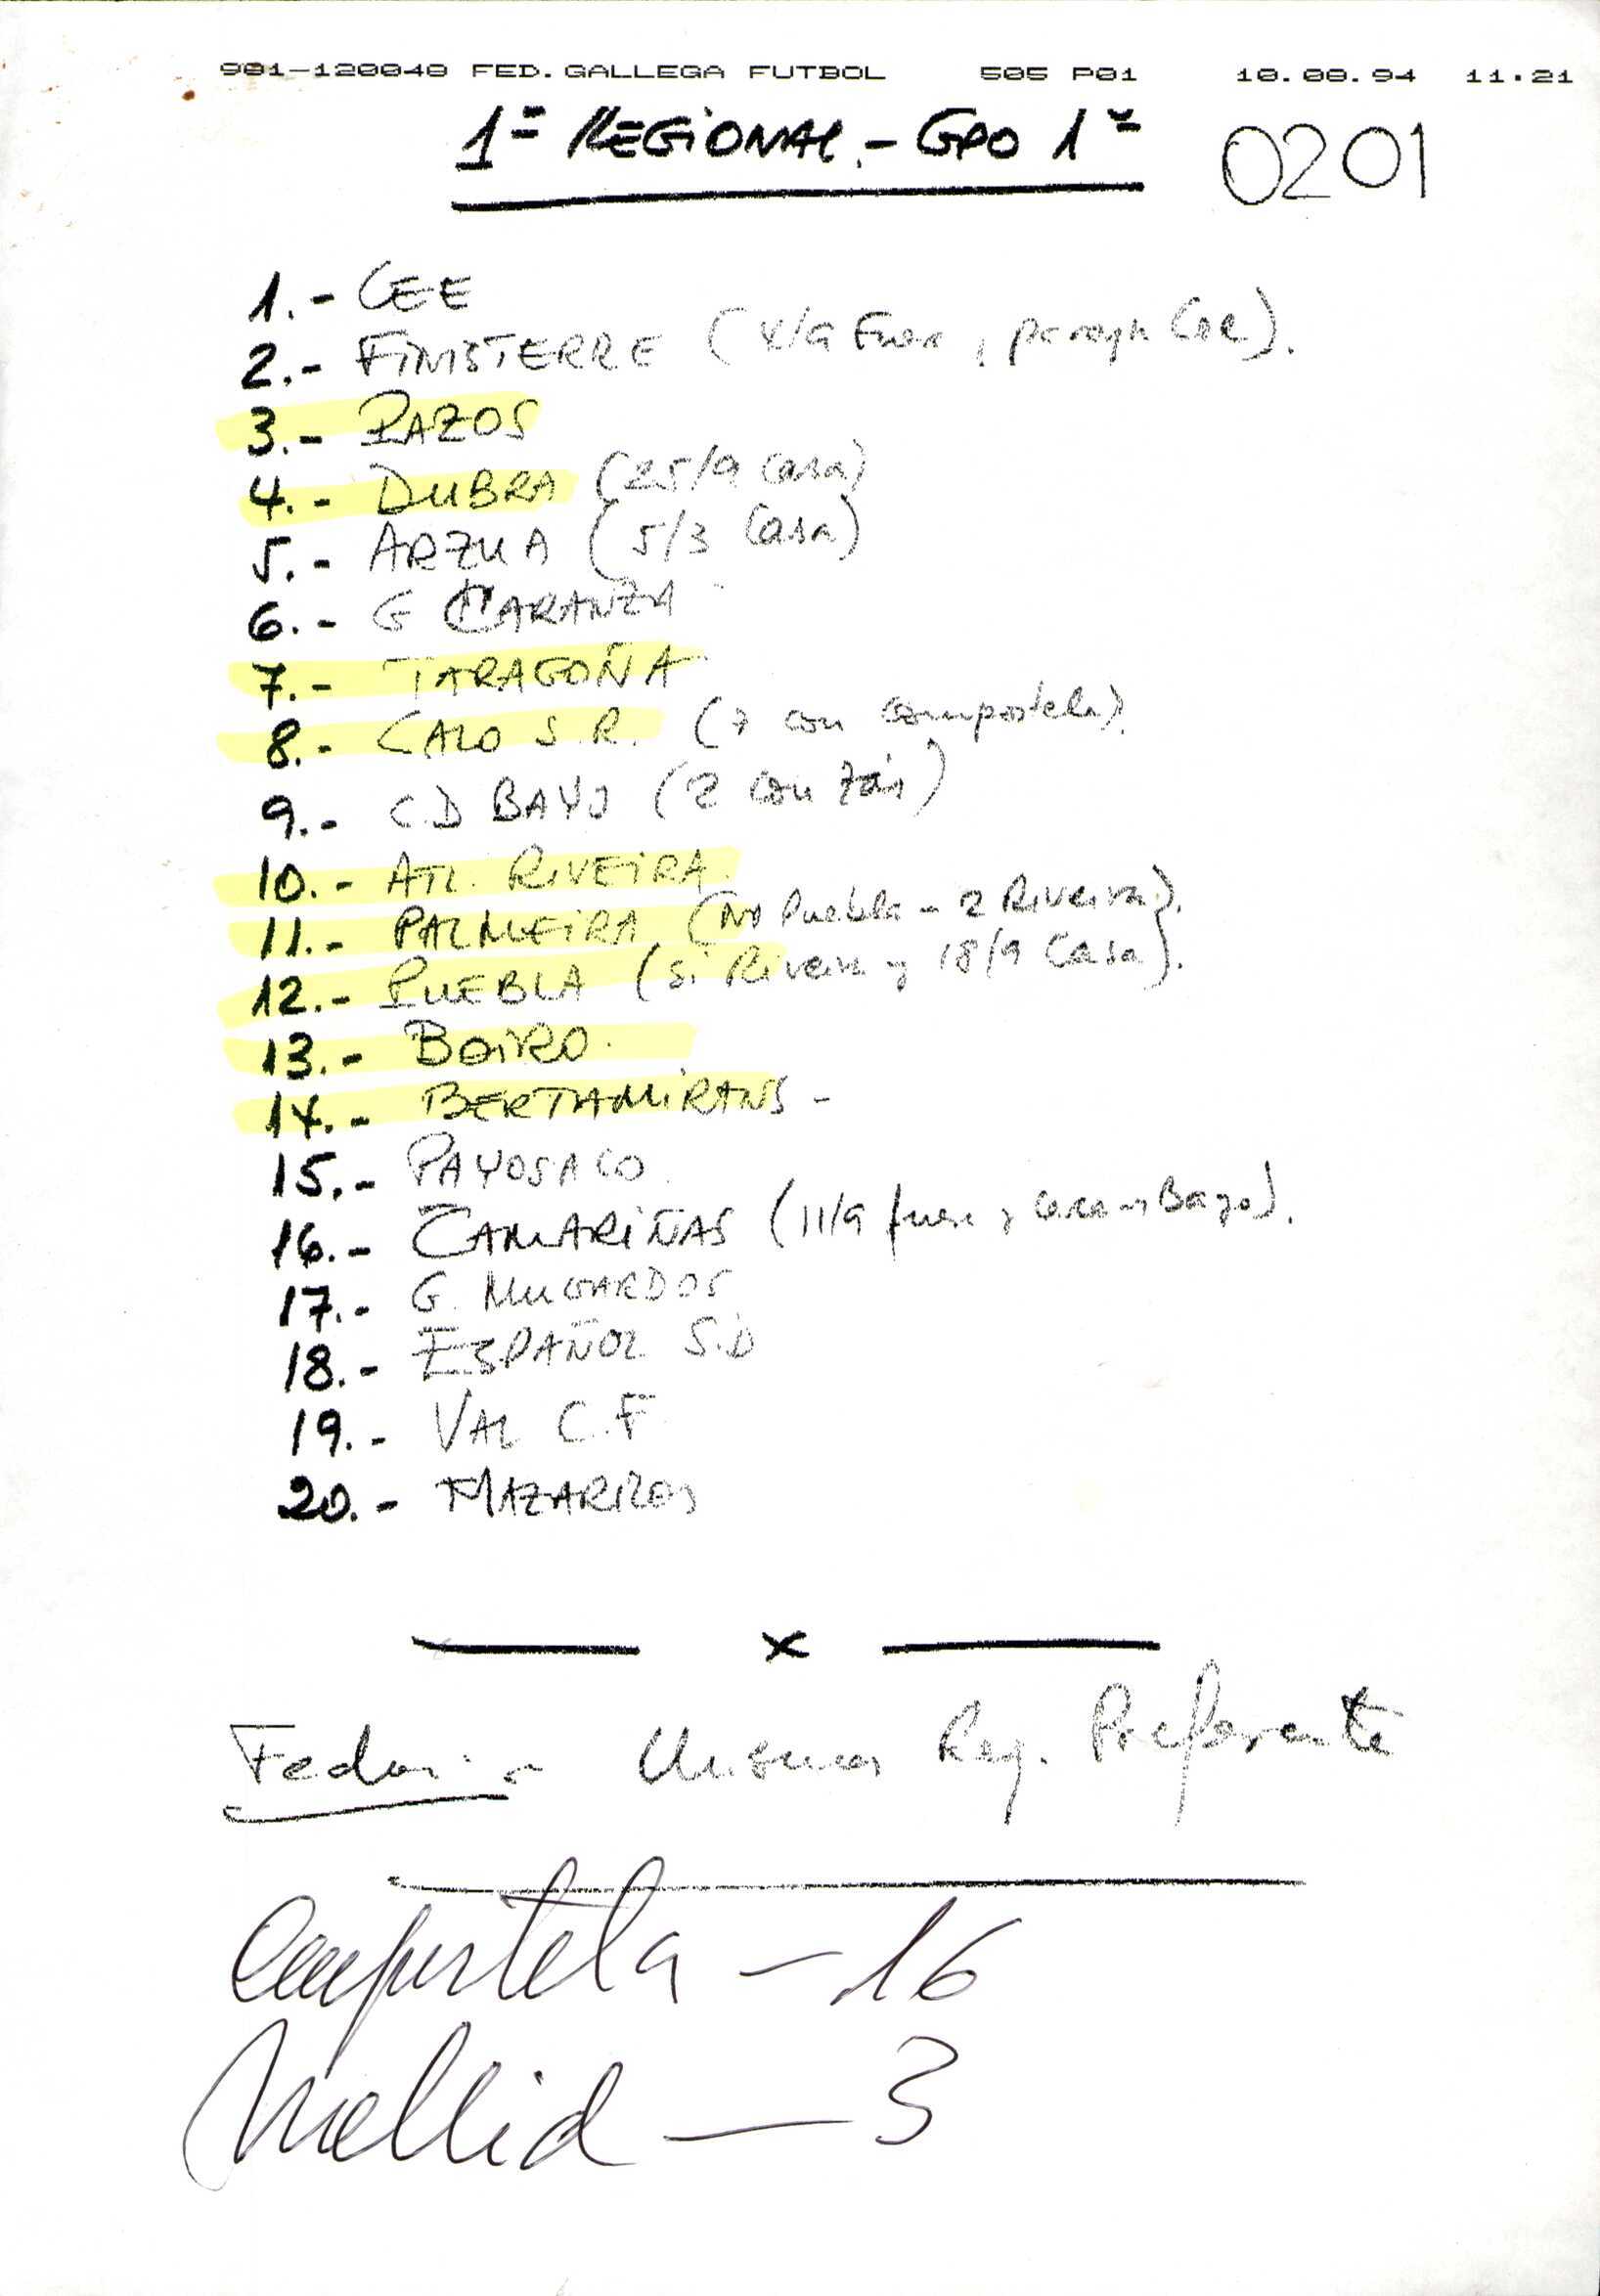 981-120048 FED. GALLEGA FUTBOL 505 P01 10.08.94 11:21
1ª REGIONAL.- GPO 1º 0201
1.- CEE
2.- FINISTERRE (4/9 Fuera, pareja Cee).
3.- PAZOS
4.- DUBRA (25/9 Casa)
5.- ARZUA (5/3 Casa)
6.- G CARANZA
7.- TARAGOÑA
8.- CALO S.R. (7 con compostela).
9.- C.D BAYO (2 con Zás)
10.- ATL. RIVEIRA.
11.- PALMEIRA (No Puebla - 2 Riveira).
12.- PUEBLA (Si Riveira y 18/9 Casa).
13.- BOIRO.
14.- BERTAMIRANS -
15.- PAYOSACO.
16.- CAMARIÑAS (11/9 fuera y Bayo).
17.- G. MUGARDOS
18.- ESPAÑOL S.D
19.- VAL C.F
20.- MAZARICOS
x
Fechas.- Mismas Reg. Preferente
Compostela - 16
Mellid - 3